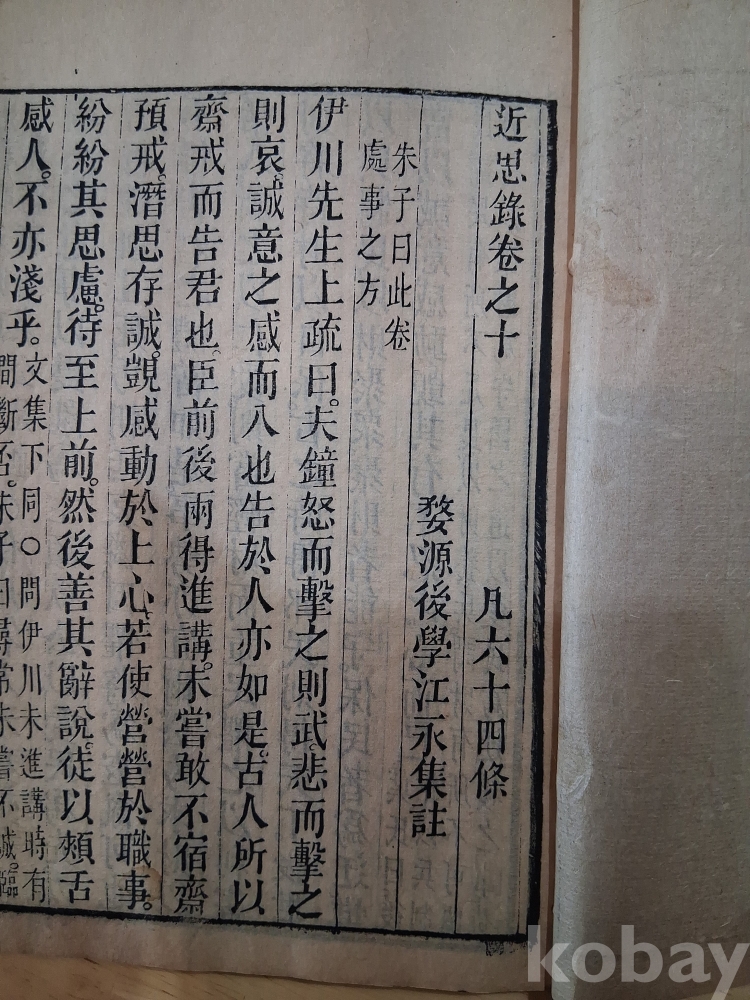 近思錄卷之十　凡六十四條
婺源後學江永集註
朱子曰此卷
處事之方
伊川先生上疏曰夫鐘怒而擊之則武悲而擊之
則哀。誠意之感而入也告於人亦如是。古人所以
齋戒而告君也。臣前後兩得進講。未嘗敢不宿齋
預戒。潛思存誠。覬感動於上心。若使營營於職事。
紛紛其思慮。待至上前。然後善其辭說。徒以頰舌
感人。不亦淺乎。
文集下同○問伊川未進講時有
間斷否。朱子曰尋常未嘗不誠。臨
kobay